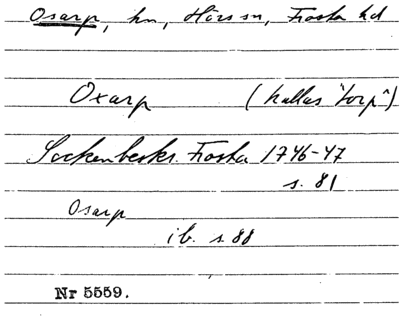 Osarp, hn, Hörs sn, Frosta hd
Oxarp (kallas "torp")
Sockenbeskr. Frosta 1746-47
s. 81
Osarp
ib. s. 88
Nr 5559.